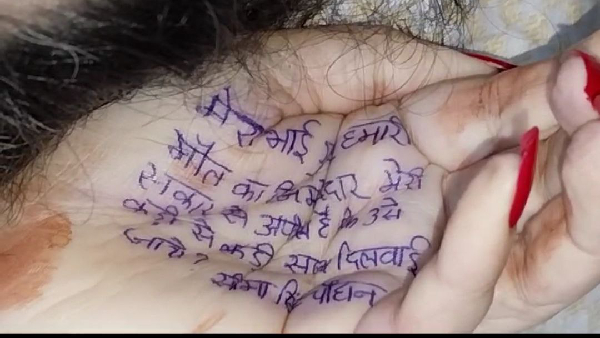 मेरा भाई हमारी
मौत का जिमेदार मेरी
सरकार से अपील है कि उसे
कड़ी से कड़ी सजा दिलवाई
जाये?
चौहान